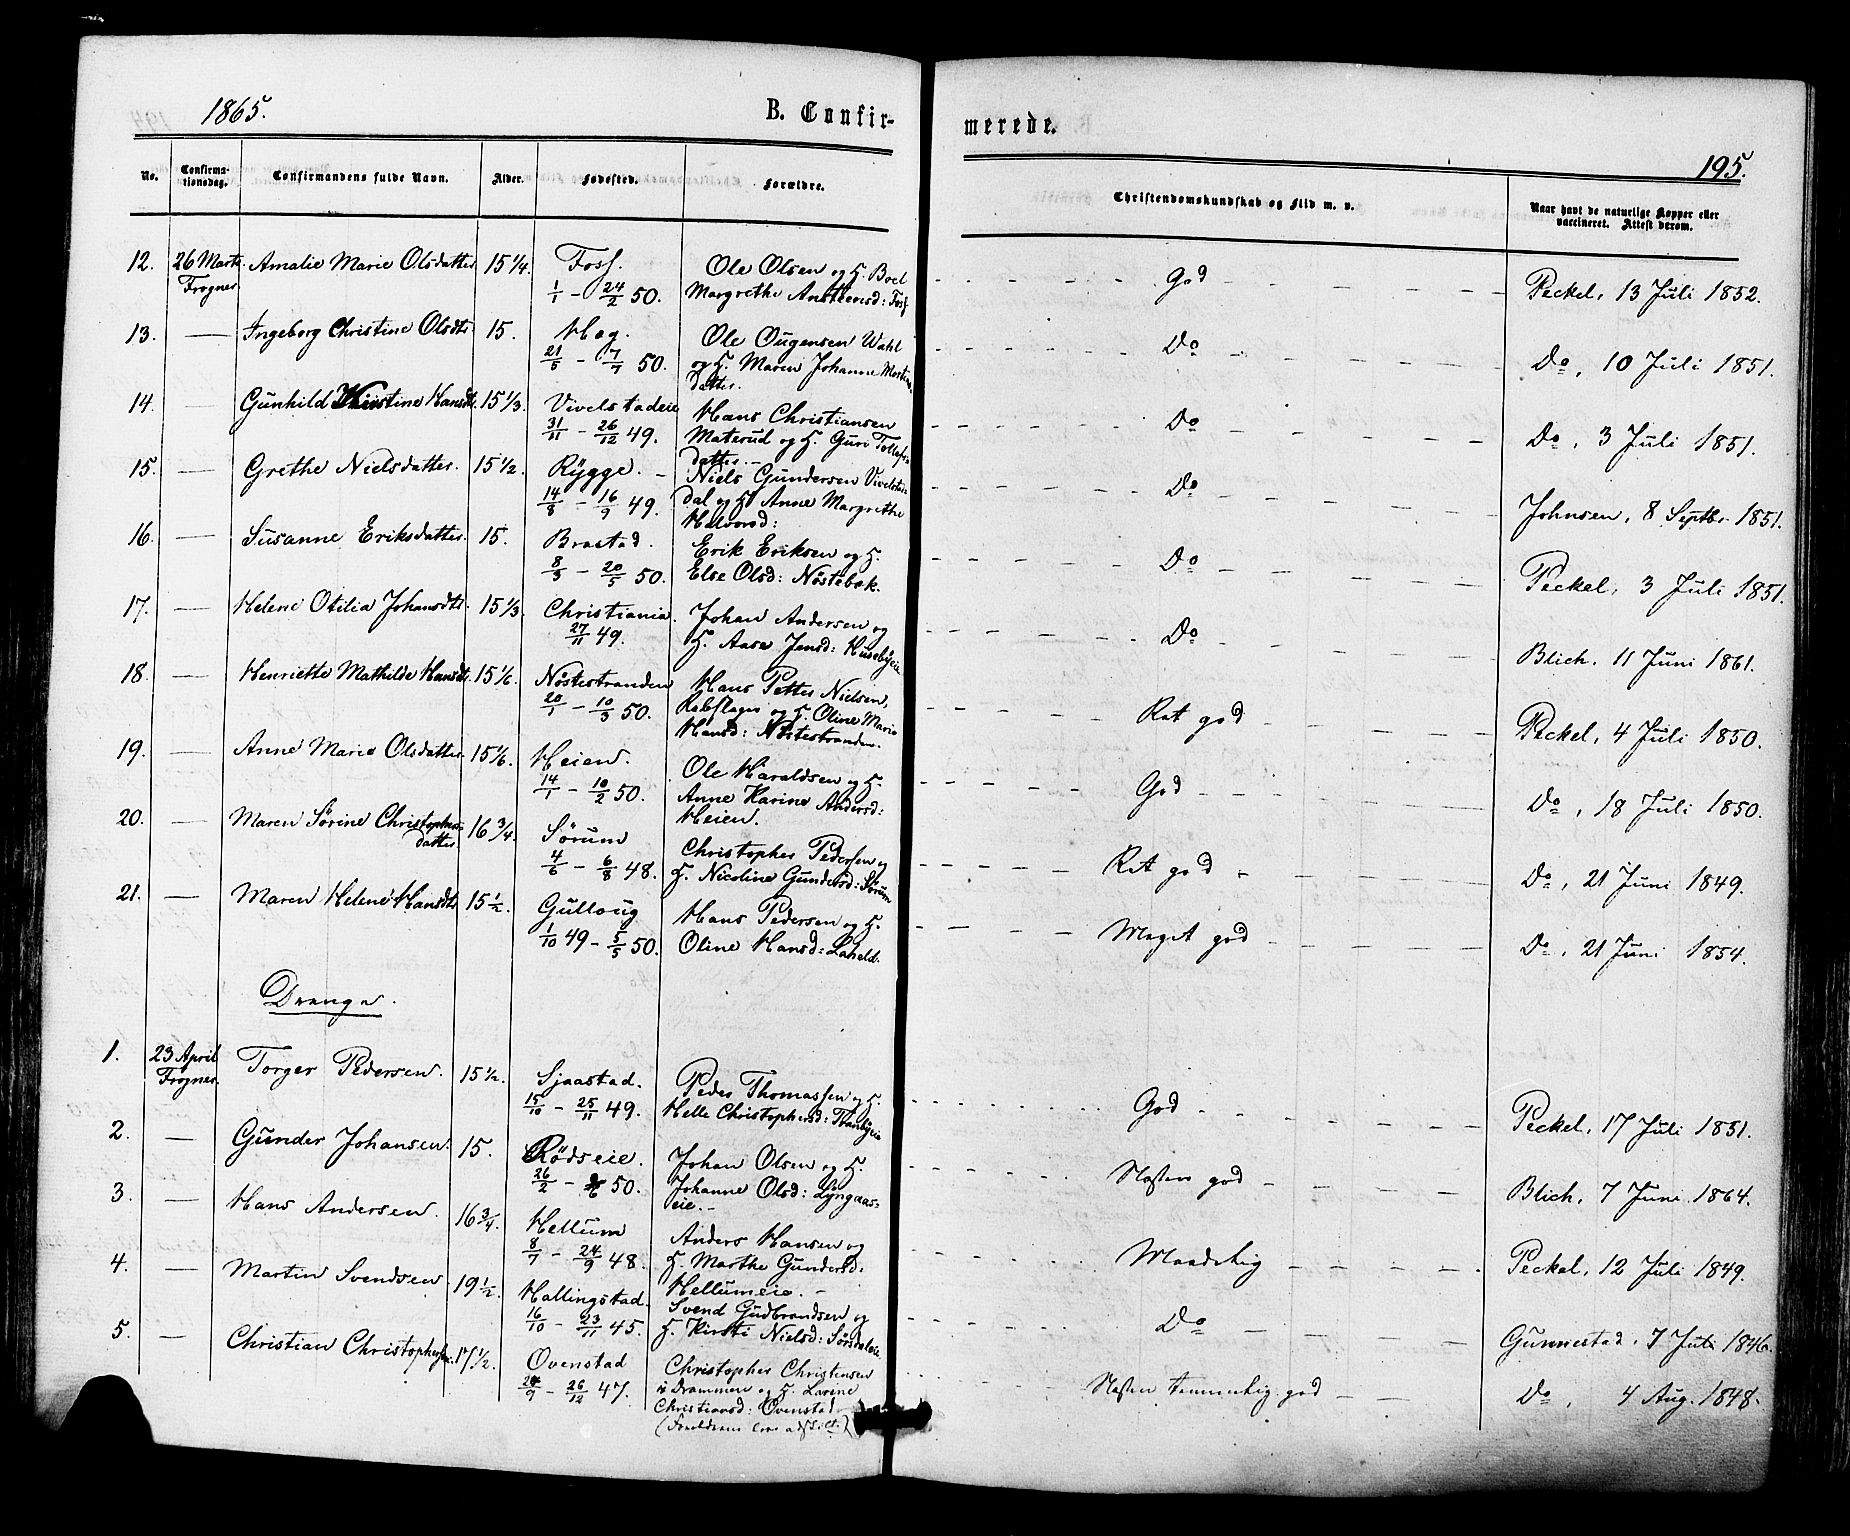 1865.
B. Confir-
merede.
195.
No.
Confirma-
tionsdag.
Confirmandens fulde Navn.
Alder.
Fødested.
Forældre.
Christendomskundskab og Flid m. v.
Naar havt de naturlige Kopper eller
vaccineret. Attest derom.
12. 26 Marts Amalie Marie Olsdatter 15 1/4. Foss. Ole Olsen og H. Boel God Peckel, 13 Juli 1852.
Frogner. 1/1 - 24/2 50. Margrethe Ansteensd: Foss
13. — Ingeborg Christine Olsdtr. 15. Hæg. Ole Ougensen Wahl Do Do, 10 Juli 1851.
21/5 - 7/7 50. og H. Maren Johanne Mortens
datter.
14. — Gunhild Kirstine Hansdtr. 15 1/3. Vivelstadeie Hans Christiansen Do Do, 3 Juli 1851.
31/11 - 26/12 49. Materud og H. Guri Tollefs
datter.
15. — Grethe Nielsdatter. 15 1/2. Rygge. Niels Gundersen Vivelstad Do Johnsen, 8 Septbr. 1851.
14/8 - 16/9 49. dal og H. Anne Margrethe
Halvorsd:
16. — Susanne Eriksdatter. 15. Brastad. Erik Eriksen og H. Do Peckel, 3 Juli 1851.
8/3 - 20/5 50. Else Olsd: Nøstebæk.
17. — Helene Otilia Johansdtr. 15 1/3. Christiania. Johan Andersen og Do Blich, 11 Juni 1861.
27/11 49. H. Aase Jensd: Husebyeie
18. — Henriette Mathilde Hansdtr. 15 1/6. Nøstestranden Hans Petter Nielsen, Ret god Peckel, 4 Juli 1850.
20/1 - 10/3 50. Rebslager og H. Oline Marie
Hansd: Nøstestranden.
19. — Anne Marie Olsdatter. 15 1/6. Heien. Ole Haraldsen og H. God Do, 18 Juli 1850.
14/1 - 10/2 50. Anne Karine Andersd:
Heien.
20. — Maren Sørine Christopher- 16 3/4. Sørum Christopher Pedersen og Ret god Do, 21 Juni 1849.
datter. 4/6 - 6/8 48. H. Nicoline Gundersd: Sørum
21. — Maren Helene Hansdtr. 15 1/2. Gulloug Hans Pedersen og H. Meget god Do, 21 Juni 1854.
1/10 49 - 5/5 50. Oline Hansd: Laheld.
Drenge.
1. 23 April Torger Pedersen. 15 1/2. Sjaastad. Peder Thomassen og H. God Peckel, 17 Juli 1851.
Frogner. 15/10 - 25/11 49. Helle Christophersd: Tranbyeie
2. — Gunder Johansen. 15. Rödseie. Johan Olsen og H. Næsten god Blich, 7 Juni 1864.
26/2 - /6 50. Johanne Olsd: Lyngaas-
eie.
3. — Hans Andersen. 16 3/4. Hellum Anders Hansen og Maadelig Peckel, 12 Juli 1849.
8/7 - 24/9 48. H. Marthe Gundersd:
Hellumeie.
4. — Martin Svendsen 19 1/2. Hallingstad. Svend Gudbrandsen og Do Gunnestad, 7 Juli 1846.
16/10 - 23/11 45. H. Kirsti Nielsd: Sørsdaleie
5. — Christian Christophersen. 17 1/2. Ovenstad Christopher Christensen Næsten temmelig god Do, 4 Aug. 1848.
24/9 - 26/12 47. i Drammen og H. Lavine
Christiansd: Ovenstad
(Forældrene leve adskilt.)